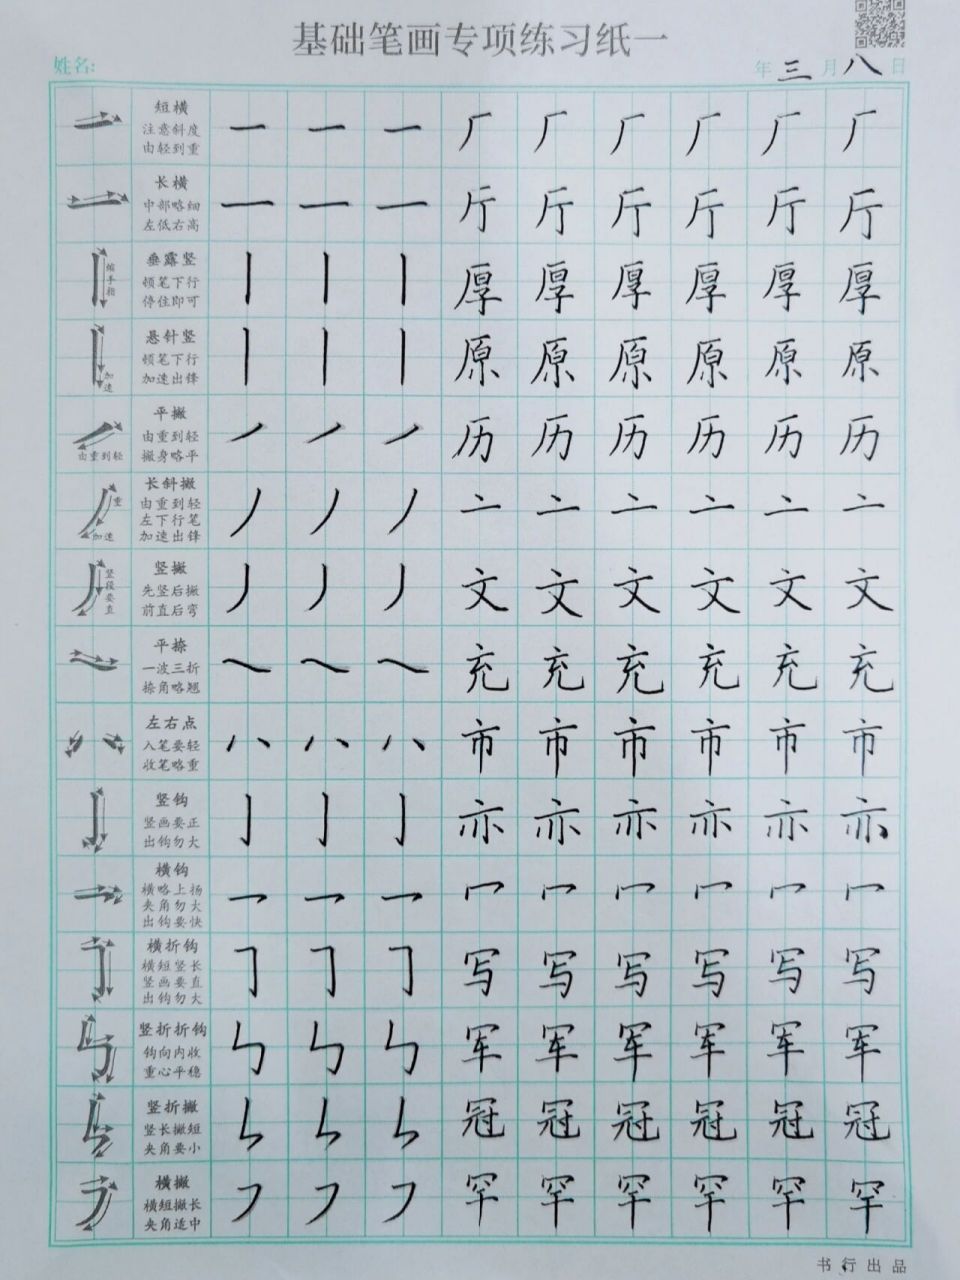 基础笔画专项练习纸一
姓名: 年 三 月 八 日
短横
注意斜度
由轻到重
一 一 一 厂 厂 厂 厂 厂 厂
长横
中部略细
左低右高
一 一 一 斤 斤 斤 斤 斤 斤
垂露竖
顿笔下行
停住即可
丨 丨 丨 厚 厚 厚 厚 厚 厚
悬针竖
加速
顿笔下行
加速出锋
丨 丨 丨 原 原 原 原 原 原
平撇
由重到轻
由重到轻
撇身略平
丿 丿 丿 历 历 历 历 历 历
长斜撇
重
加速
由重到轻
左下行笔
加速出锋
丿 丿 丿 亠 亠 亠 亠 亠 亠
竖撇
竖段要直
先竖后撇
前直后弯
丿 丿 丿 文 文 文 文 文 文
平捺
一波三折
捺角略翘
㇏ ㇏ ㇏ 充 充 充 充 充 充
左右点
入笔要轻
收笔略重
八 八 八 市 市 市 市 市 市
竖钩
竖画要正
出钩勿大
亅 亅 亅 亦 亦 亦 亦 亦 亦
横钩
横略上扬
夹角勿大
出钩要快
乛 乛 乛 冖 冖 冖 冖 冖 冖
横折钩
横短竖长
竖画要直
出钩勿大
𠃌 𠃌 𠃌 写 写 写 写 写 写
竖折折钩
钩向内收
重心平稳
㇉ ㇉ ㇉ 军 军 军 军 军 军
竖折撇
竖长撇短
夹角要小
ㄣ ㄣ ㄣ 冠 冠 冠 冠 冠 冠
横撇
横短撇长
夹角适中
㇇ ㇇ ㇇ 罕 罕 罕 罕 罕 罕
书行出品